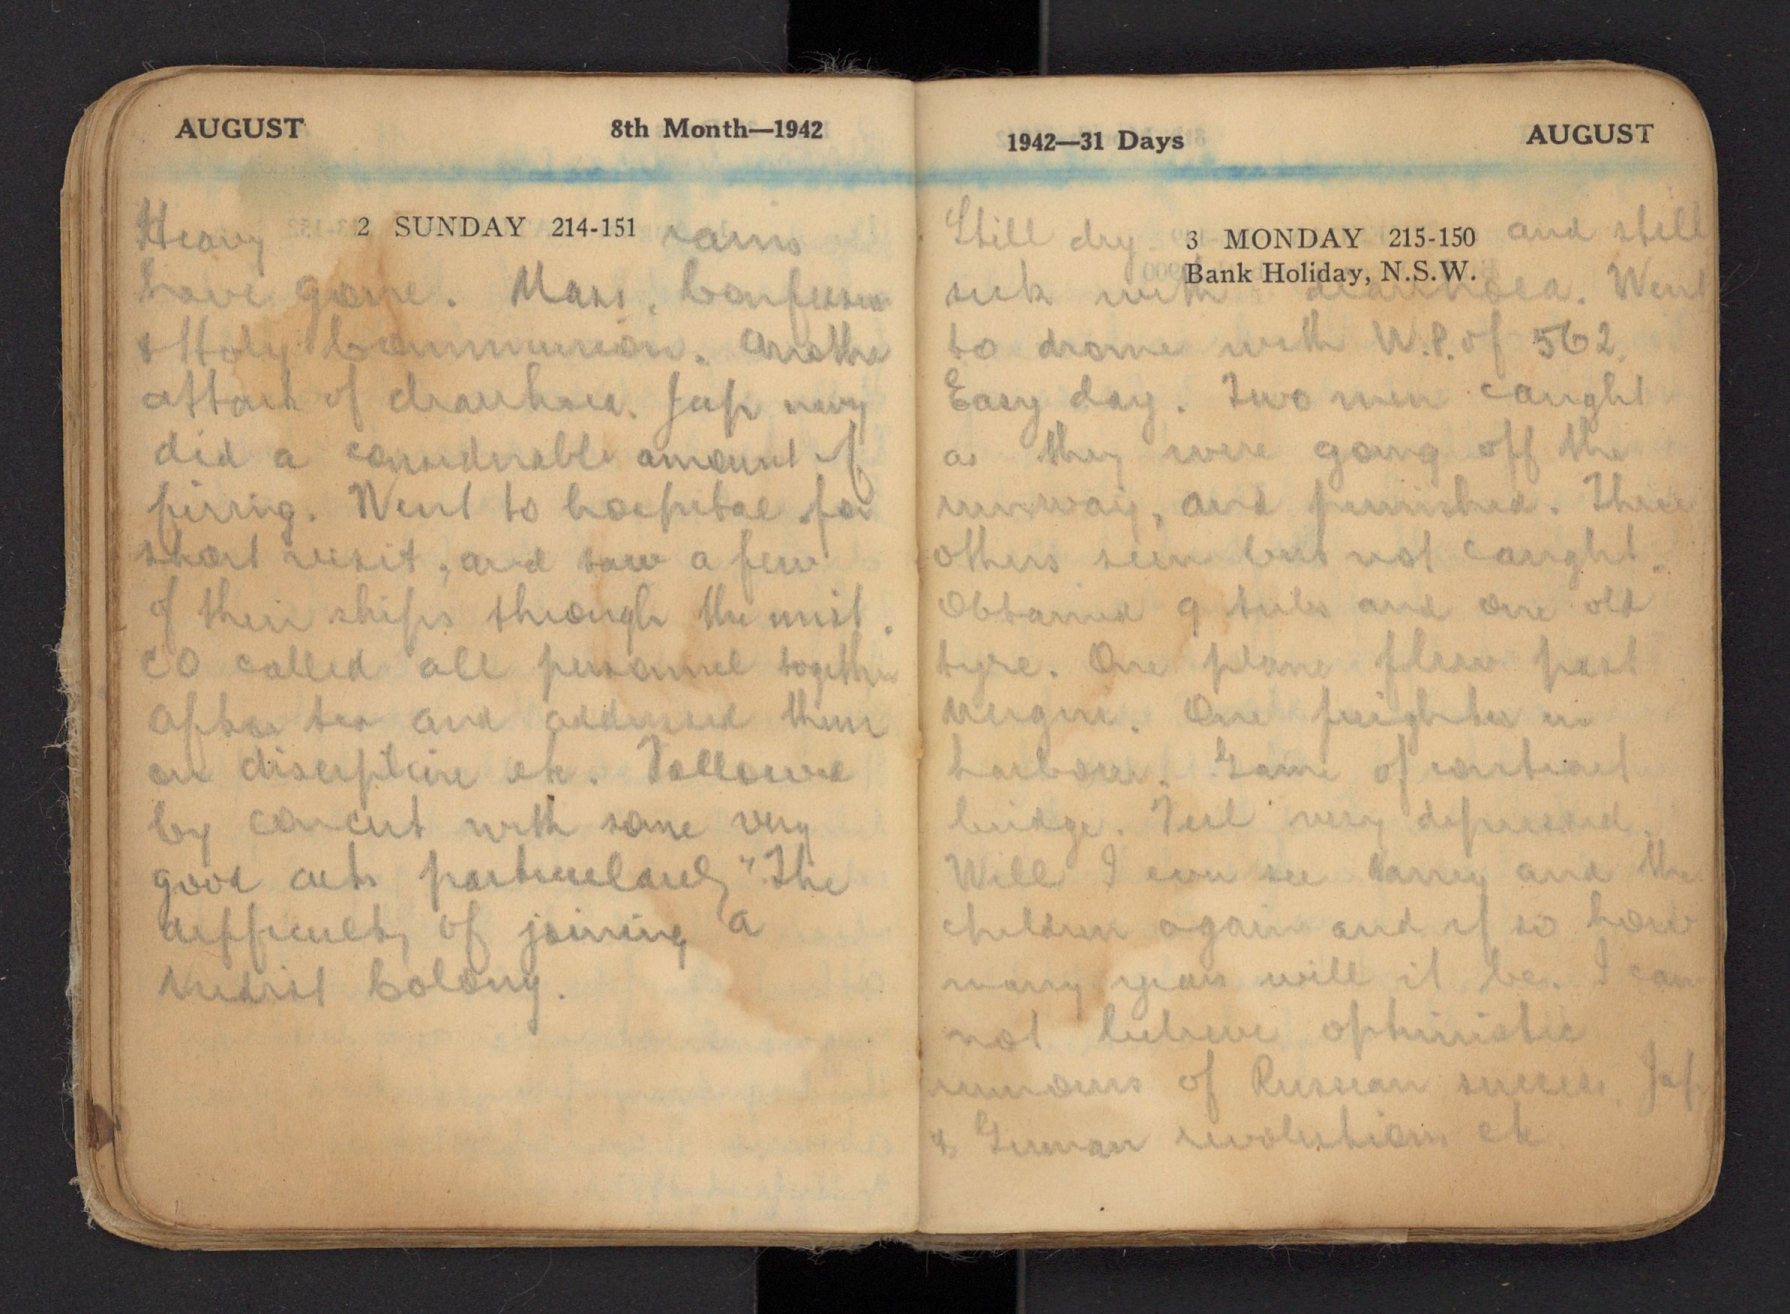 AUGUST 8th Month—1942
2 SUNDAY 214-151
Heavy rains
have gone. Mass, Confession
& Holy Communion. Another
attack of diarrhoea. Jap navy
did a considerable amount of
firing. Went to hospital for
short visit, and saw a few
of their ships through the mist.
CO called all personnel together
after tea and addressed them
on discipline etc. Followed
by concert with some very
good acts particularly "The
difficulty of joining a
nudist Colony.
1942—31 Days AUGUST
3 MONDAY 215-150
Bank Holiday, N.S.W.
Still dry and still
sick with diarrhoea. Went
to drome with W.P. of 562.
Easy day. Two men caught
as they were going off the
runway, and punished. Three
others seen but not caught.
Obtained 9 tubes and one old
tyre. One plane flew past
One freighter in
harbour. Game of contract
bridge. Feel very depressed.
Will I ever see and the
children again and if so how
many years will it be. I can
not believe optimistic
rumours of Russian success, Jap
& German revolutions etc